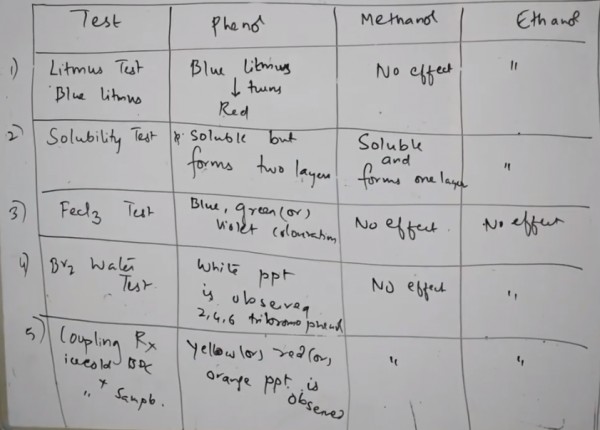 Test Phenol Methanol Ethanol
1) Litmus Test Blue litmus No effect "
Blue litmus ↓ turns
Red
2) Solubility Test Soluble but Soluble "
forms two layers and
forms one layer
3) Fecl3 Test Blue, green (or) No effect. No effect
Violet colouration
4) Br2 Water White ppt No effect "
Test is observed
2,4,6 tribromo phenol
5) Coupling Rx Yellow (or) red (or) " "
icecold orange ppt is
" observed